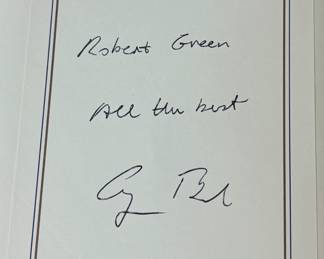 Robert Green
All the best